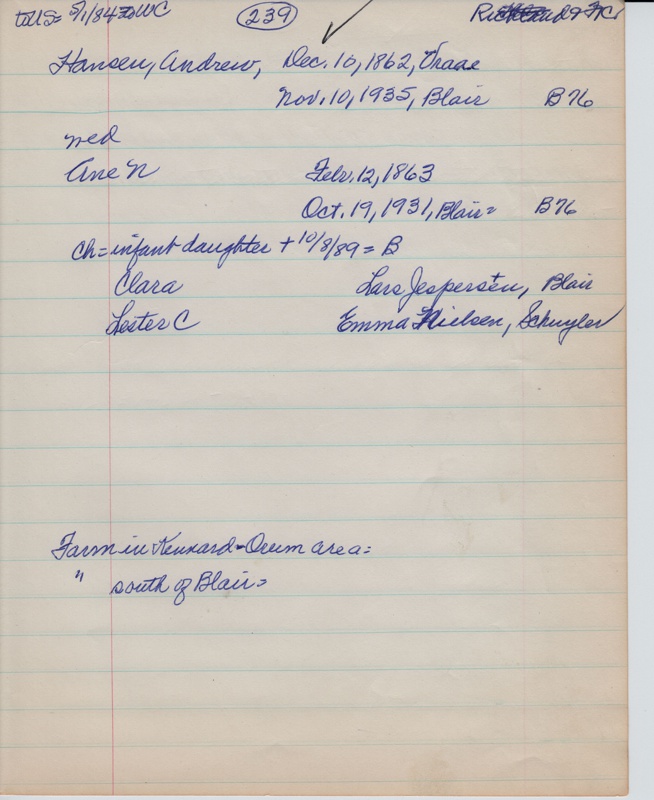 to U.S= 5/1/84 to WC 239
Hansen, Andrew, Dec. 10, 1862, Thaae
Nov. 10, 1935, Blair B76
wed
Ane N Febr. 12, 1863
Oct. 19, 1931, Blair= B76
ch= infant daughter + 10/8/89= B
Clara Lars Jespersen, Blair
Lester C Emma Nielsen, Schuyler
Farm in Kennard-Orum area=
" south of Blair=